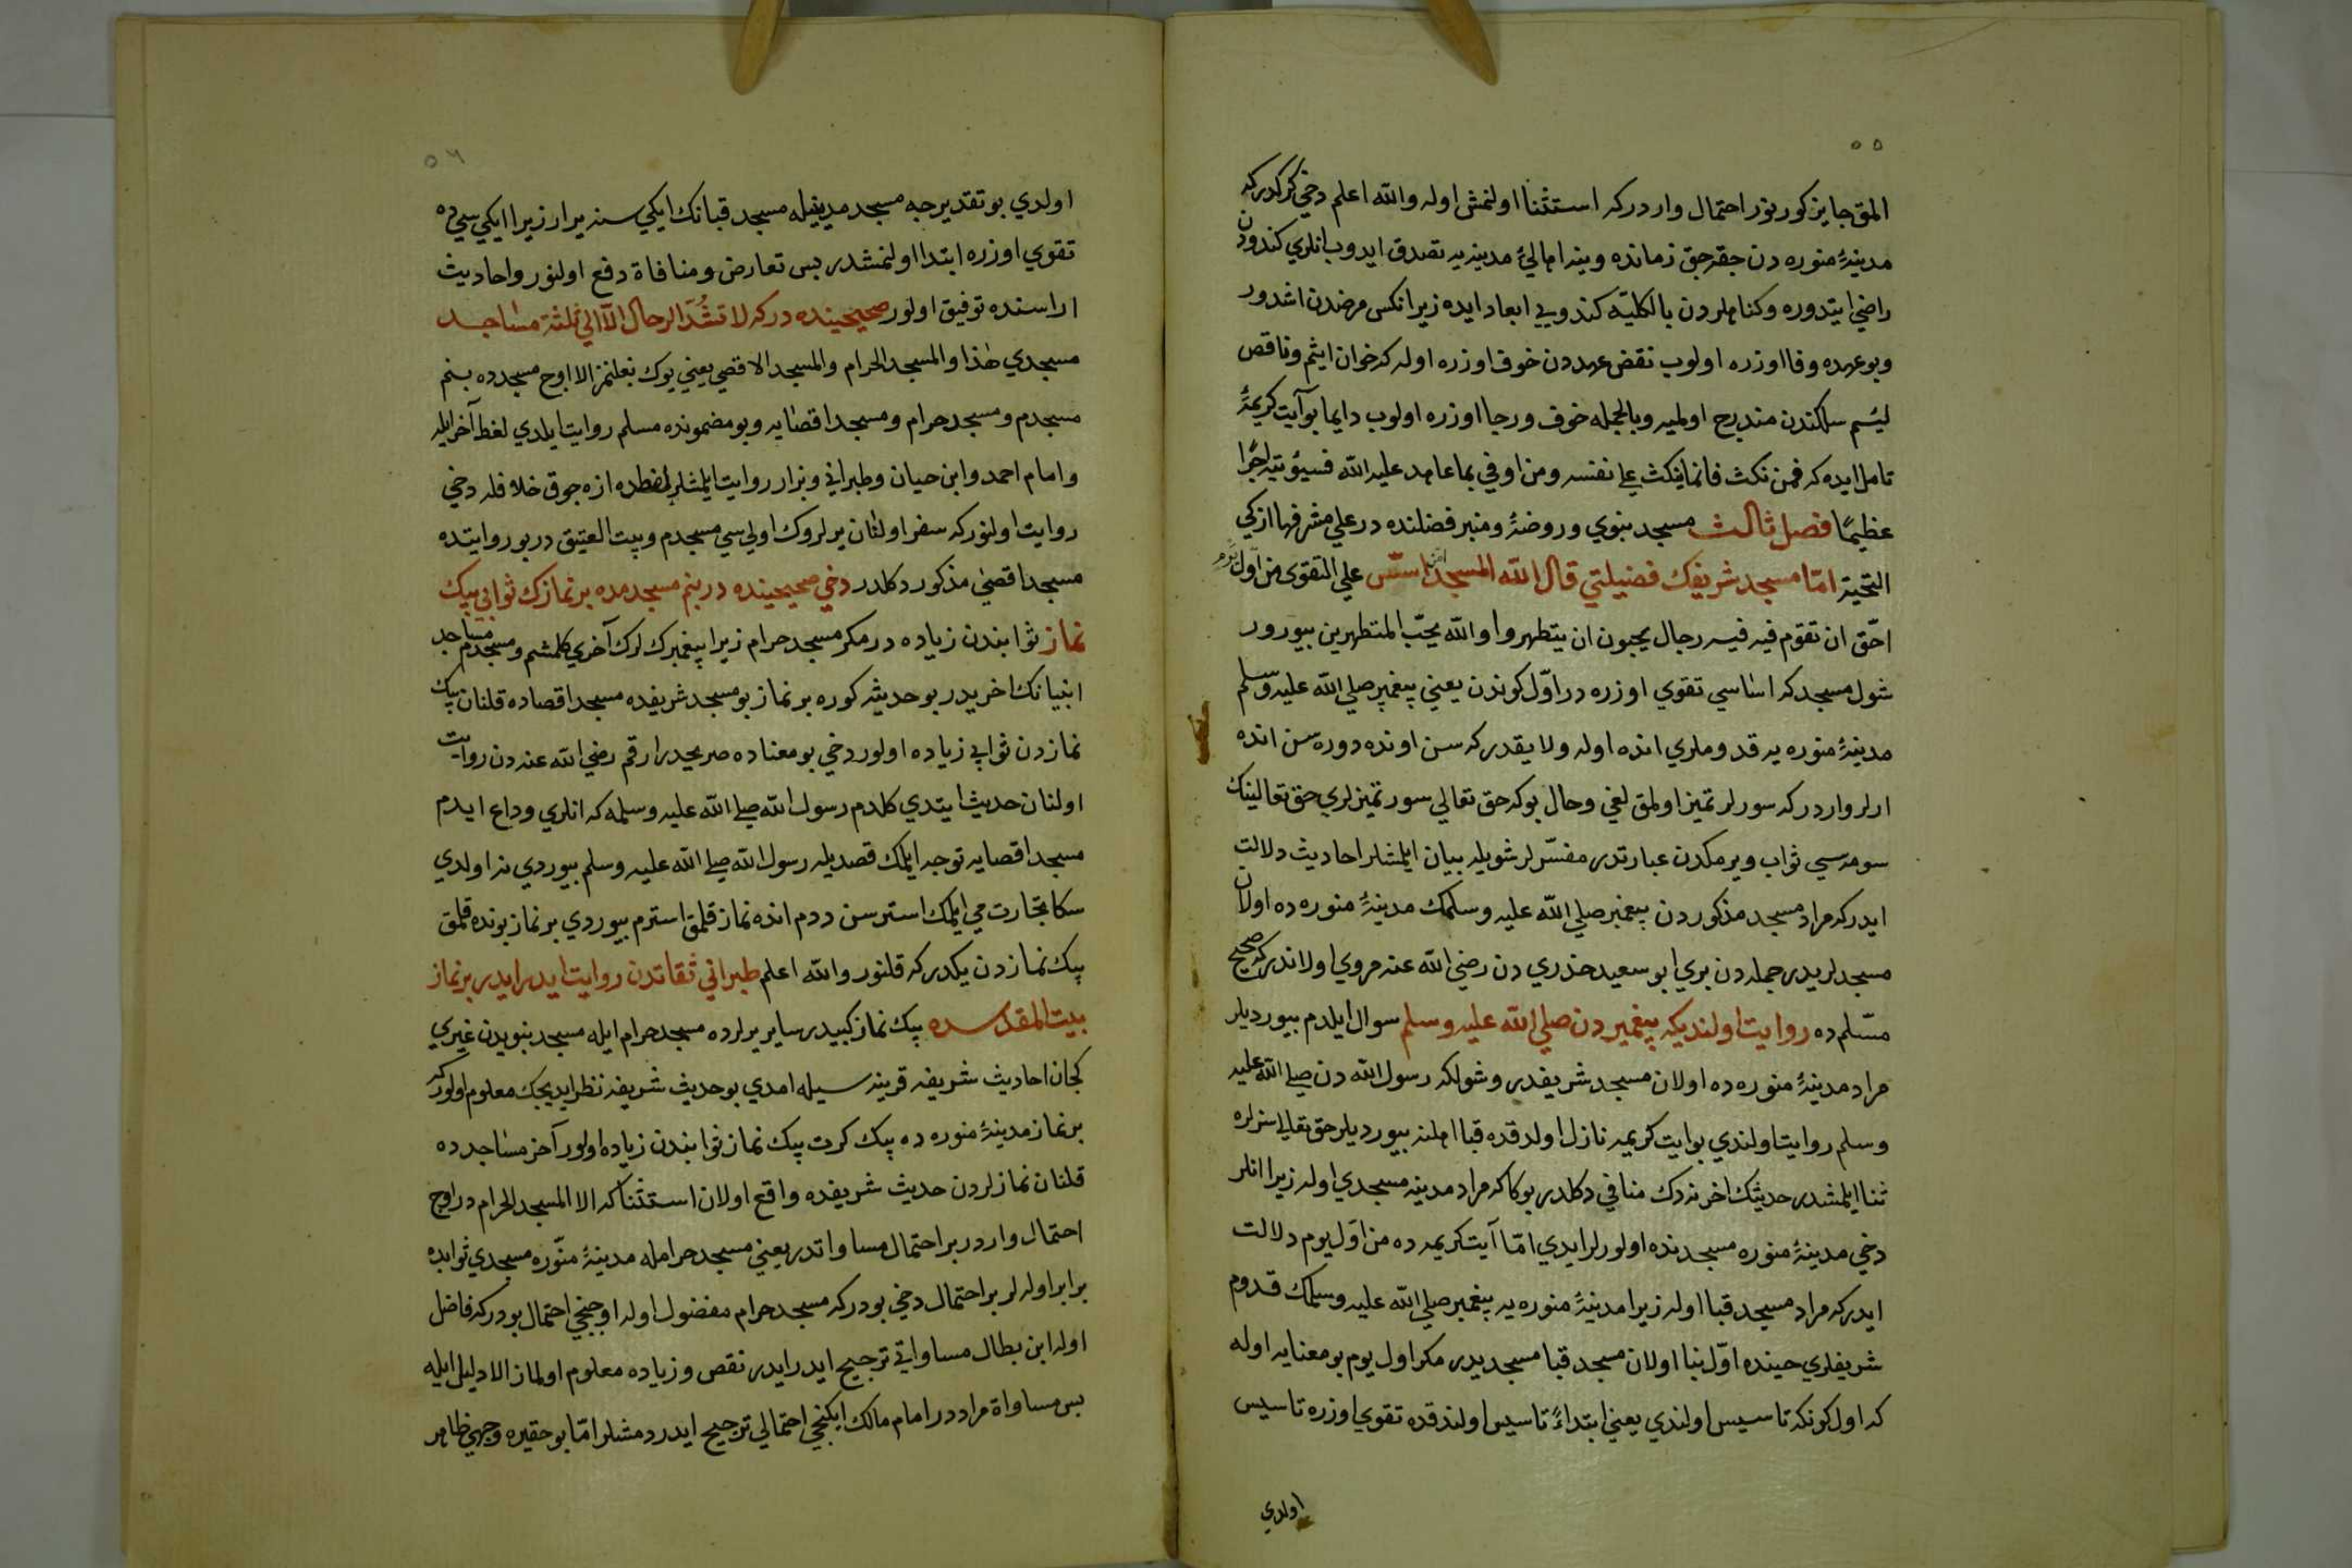 ٥٥
المق جايز كورينور احتمال وار دركه استثنا اولنمش اوله والله اعلم دخي كركدركه
مدينۀ منوره دن جقرجق زمانده وينه اهالئ مدينه يه تصدق ايدوب انلري كندودن
راضي ايتدوره وكناهلردن بالكليه كندويي ابعاد ايده زيرا نكس مرضدن اشدور
وبو عهده وفا اوزره اولوب نقض عهددن خوف اوزره اوله كه خوان اثيم وناقص
لئيم سلكندن مندرج اولميه وبالجمله خوف ورجا اوزره اولوب دايما بو آيت كريمۀ
تامل ايده كه فمن نكث فانما ينكث علي نفسه ومن اوفي بما عاهد عليه الله فسيؤتيه اجرًا
عظيمًا فصل ثالث مسجد نبوي وروضۀ ومنبر فضلنده در علي مشرفها ازكي
التحية امّا مسجد شريفك فضيلتي قال الله المسجد اسّس علي التقوى من اوّل يوم
احّق ان تقوم فيه فيه رجال يحبون ان يتطهروا والله يحبّ المتطهرين بيورور
شول مسجد كه اساسي تقوي اوزره در اوّل كوندن يعني پيغمبر صلي الله عليه وسلم
مدينۀ منوره يه قدوملري انده اوله ولايقدر كه سن اونده دوره سن انده
ارلر واردر كه سورلر تميز اولمق لغي وحال بوكه حق تعالي سور تميزلري حق تعالينك
سومه سي ثواب ويرمكدن عبارتدر مفسّرلر شويله بيان ايلمشلر احاديث دلالت
ايدر كه مراد مسجد مذكوردن پيغمبر صلي الله عليه وسلمك مدينۀ منوره ده اولان
مسجدلريدر جمله دن بري ابو سعيد خدري دن رضي الله عنه مروي اولاندر كه صحيح
مسّلم ده روايت اولنديكه پيغمبردن صلي الله عليه وسلم سوال ايلدم بيورديلر
مراد مدينۀ منوره ده اولان مسجد شريفدر وشولكه رسول الله دن صلي الله عليه
وسلم روايت اولندي بو ايت كريمه نازل اولدقده قبا اهلنه بيورديلر حق تعالي سزلره
ثنا ايلمشدر حديثك اخرنه دك منافي دكلدر بوكا كه مراد مدينه مسجدي اوله زيرا انلر
دخي مدينۀ منوره مسجدنده اولورلر ايدي امّا آيت كريمه ده من اوّل يوم دلالت
ايدر كه مراد مسجد قبا اوله زيرا مدينۀ منوره يه پيغمبر صلي الله عليه وسلمك قدوم
شريفلري حينده اوّل بنا اولان مسجد قبا مسجديدر مكر اول يوم بو معنايه اوله
كه اول كونكه تاسيس اولندي يعني ابتداءً تاسيس اولندقده تقوي اوزره تاسيس
اولدي
٥٦
اولدي بو تقديرجه مسجد مدينيله مسجد قبانك ايكي سنه يرار زيرا ايكي سي ده
تقوي اوزره ابتدا اولنمشدر بس تعارض ومنافاة دفع اولنور واحاديث
اراسنده توفيق اولور صحيحينده در كه لا تشُدّ الرحال الّا الي ثلثة مساجد
مسجدي هذا والمسجد الحرام والمسجد الاقصي يعني يوك بغلنمز الا اوج مسجدده بنم
مسجدم ومسجد حرام ومسجد اقصايه وبو مضمونده مسلم روايت ايلدي لفظ آخر ايله
وامام احمد وابن حيان وطبراني وبزار روايت ايلمشلر لفظده ازه جوق خلافله دخي
روايت اولنور كه سفر اولنان يرلروك اولي سي مسجدم وبيت العتيق در بو روايتده
مسجد اقصي مذكور دكلدر دخي صحيحينده در بنم مسجدمده بر نمازك ثوابي بيك
نماز ثوابندن زياده در مكر مسجد حرام زيرا پيغمبرك لرك آخري كلمشم ومسجدم مساجد
انبيانك اخريدر بو حديثه كوره بر نماز بو مسجد شريفده مسجد اقصاده قلنان بيك
نمازدن ثوابي زياده اولور دخي بو معناده صريحدر ارقم رضي الله عنه دن روايت
اولنان حديث ايتدي كلدم رسول الله صلي الله عليه وسلمه كه انلري وداع ايدم
مسجد اقصايه توجه ايلمك قصديله رسول الله صلي الله عليه وسلم بيوردي نه اولدي
سكا تجارت مي ايلمك استرسن ددم انده نماز قلمق استرم بيوردي بر نماز بونده قلمق
بيك نمازدن يكدر كه قلنور والله اعلم طبراني ثقاتدن روايت ايدر ايدر بر نماز
بيت المقدسده بيك نماز كبيدر ساير يرلرده مسجد حرام ايله مسجد نبويدن غيري
كجان احاديث شريفه قرينه سيله امدي بو حديث شريفه نظر ايديجك معلوم اولور كه
بر نماز مدينۀ منوره ده بيك كرت بيك نماز ثوابندن زياده اولور آخر مساجدده
قلنان نمازلردن حديث شريفده واقع اولان استثنا كه الا المسجد الحرام در اوج
احتمال واردر بر احتمال مساواتدر يعني مسجد حرامله مدينۀ منّوره مسجدي ثوابده
برابر اوله لر بر احتمال دخي بودر كه مسجد حرام مفضول اوله اوجنجي احتمال بودر كه فاضل
اوله ابن بطال مساواتي ترجيح ايدر ايدر نقص وزياده معلوم اولماز الا دليل ايله
بس مساواة مراددر امام مالك ايكنجي احتمالي ترجيح ايدر دمشلر امّا بو حقيره وجهي ظاهر